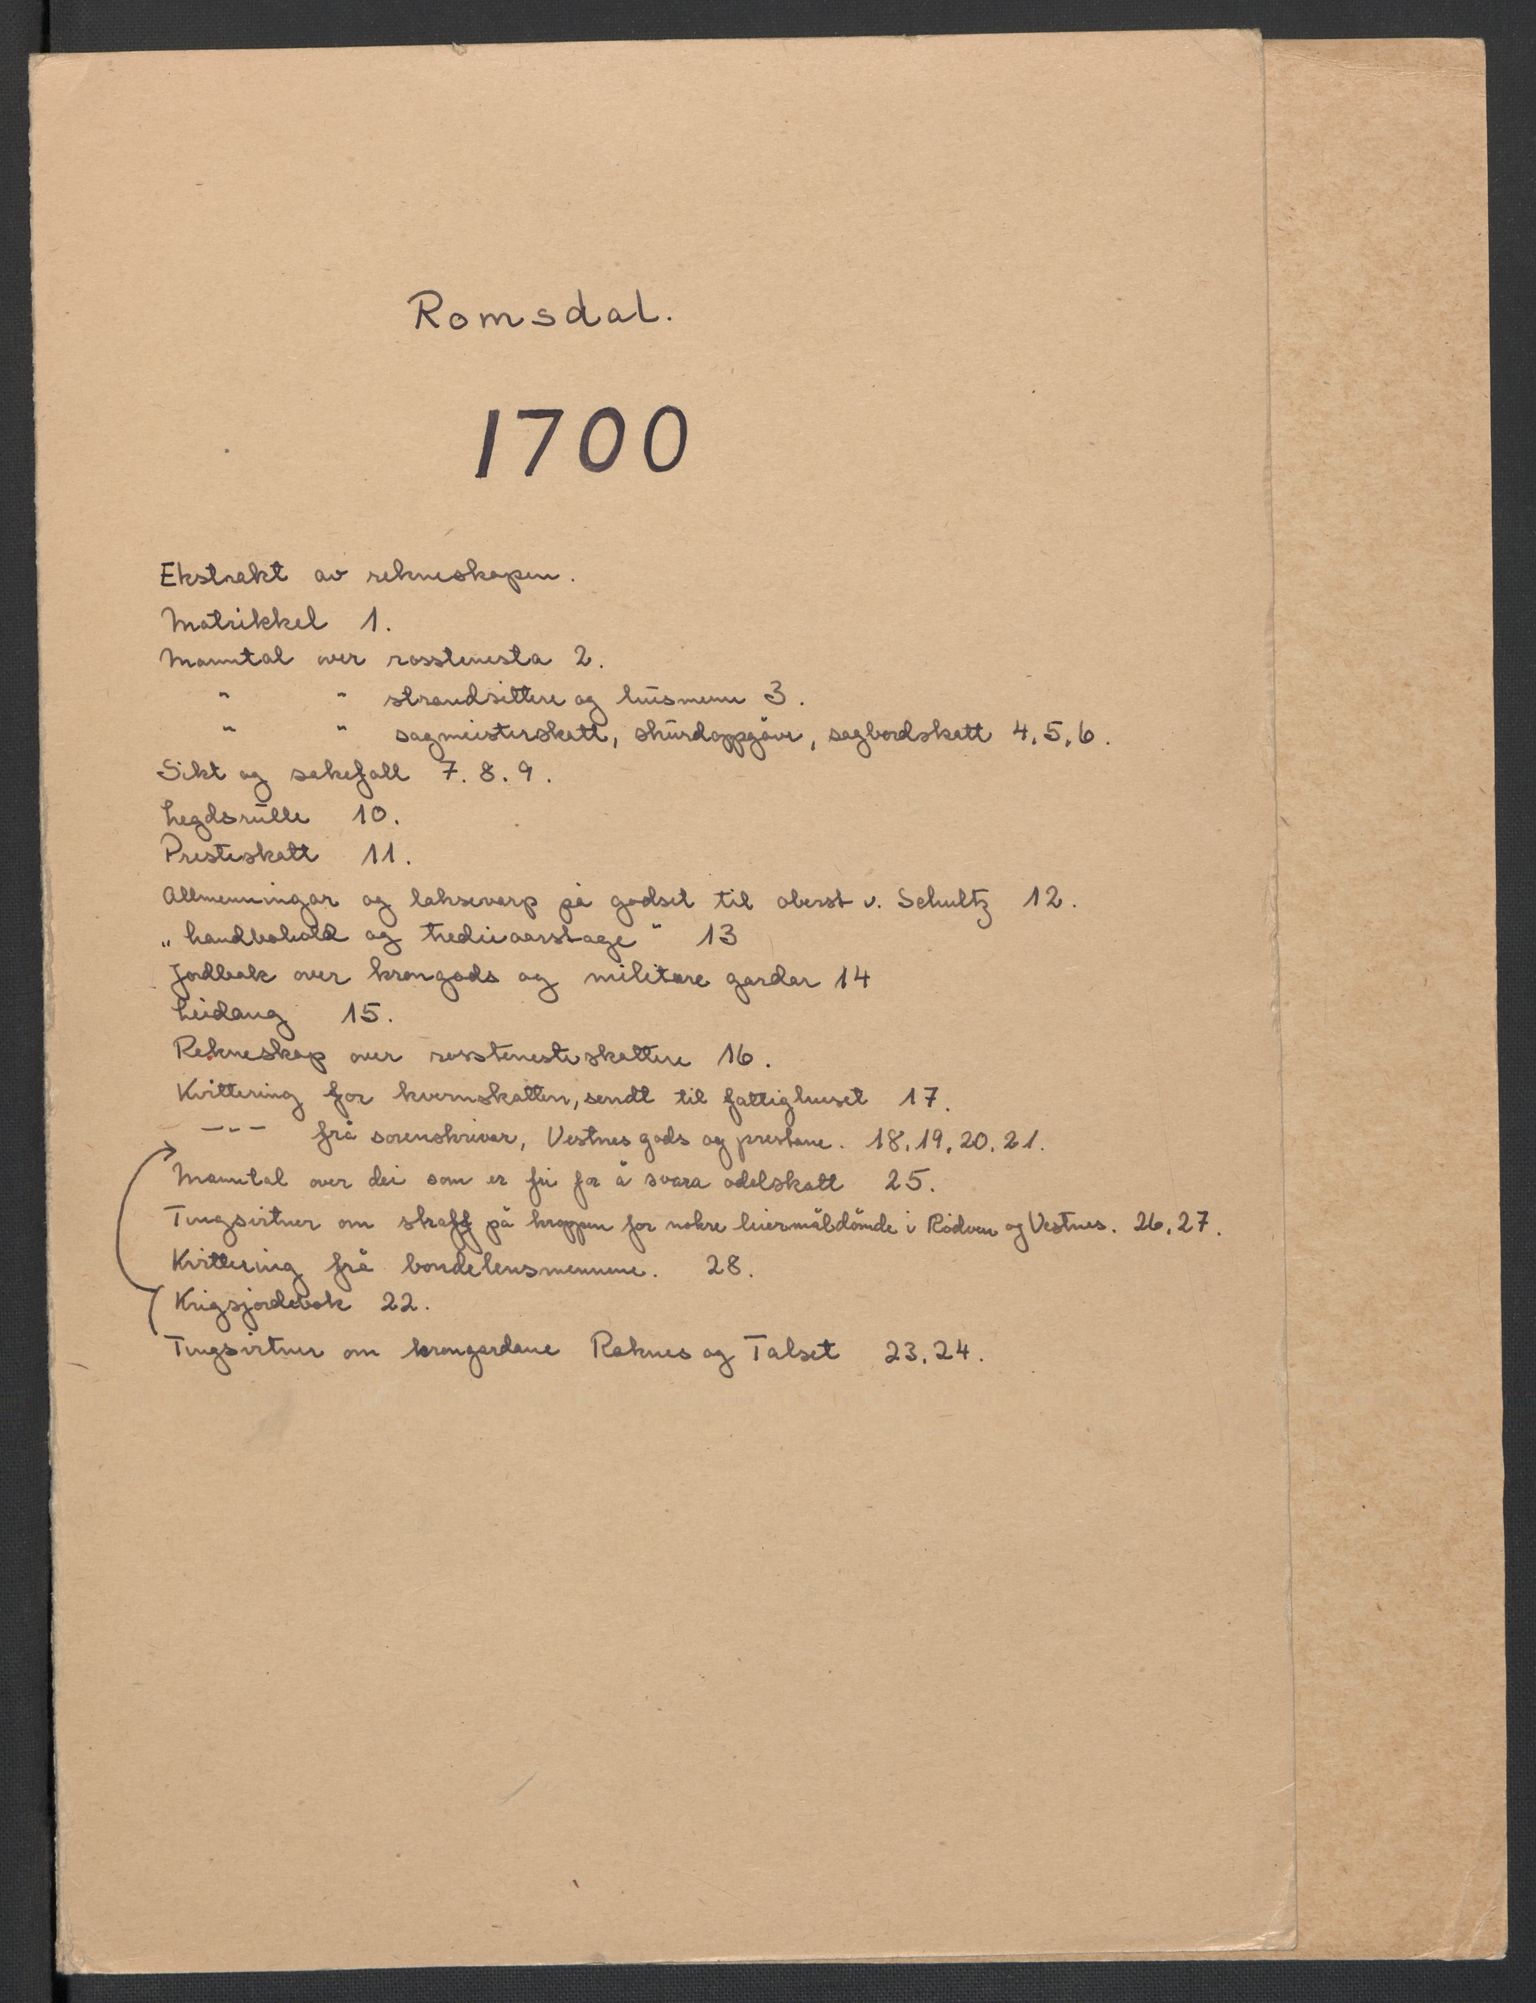 Romsdal.
1700
Ekstrakt av rekneskapen.
Matrikkel 1.
Manntal over rosstenesta 2.
" " strandsittere og husmenn 3.
" " sagmeisterskatt, skurdoppgåve, sagbordskatt 4, 5, 6.
Sikt og sakefall 7. 8. 9.
Legdsrulle 10.
Presteskatt 11.
Allmenningar og laksevarp på godset til oberst v. Schultz 12.
„ handbohold og tredieaarstage " 13
Jordbok over krongods og militære gardar 14
Leidang 15.
Rekneskap over rosstenesteskattene 16.
Kvittering for kvernskatten, sendt til fattighuset 17.
— " — frå sorenskrivar, Vestnes gods og prestane. 18, 19, 20, 21.
Manntal over dei som er fri for å svara odelskatt 25.
Tingsvitner om straff på kroppen for nokre leiermåldømde i Rødven og Vestnes. 26, 27.
Kvittering frå bondelensmennene. 28.
Krigsjordebok 22.
Tingsvitner om krongardane Raknes og Talset 23, 24.